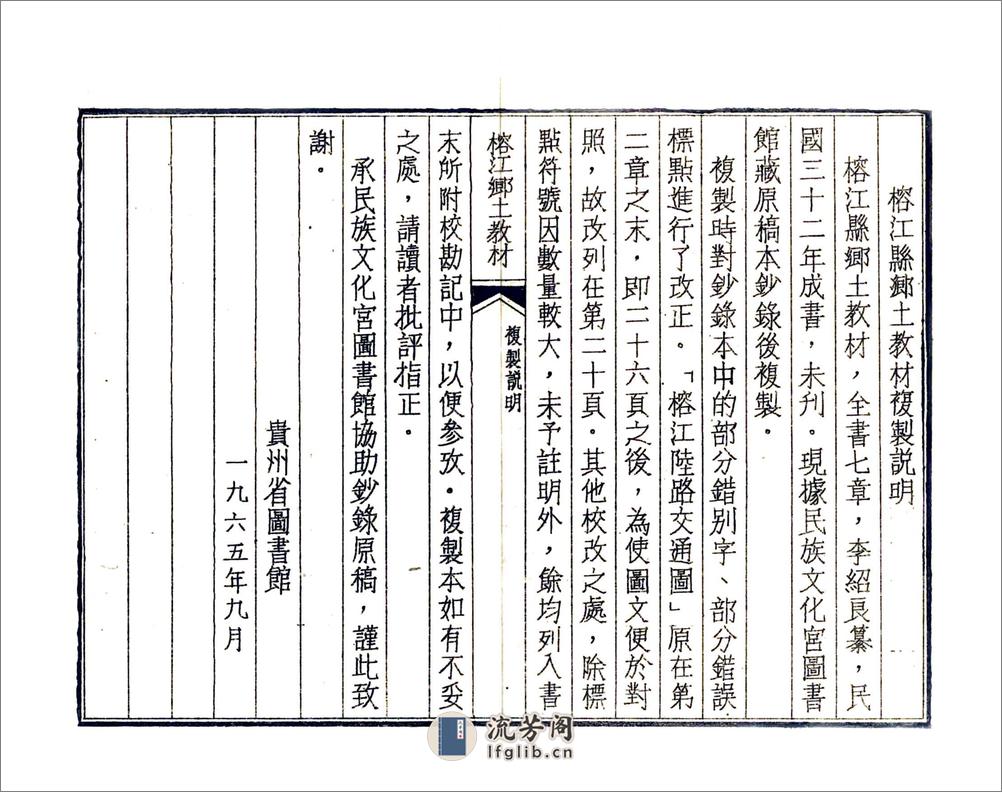 榕江縣鄉土教材複製説明
榕江縣鄉土教材，全書七章，李紹良纂，民
國三十二年成書，未刊。現據民族文化宮圖書
館藏原稿本鈔錄後複製。
複製時對鈔錄本中的部分錯别字、部分錯誤
標點進行了改正。「榕江陸路交通圖」原在第
二章之末，即二十六頁之後，為使圖文便於對
照，故改列在第二十頁。其他校改之處，除標
點符號因數量較大，未予註明外，餘均列入書
榕江鄉土教材
複製説明
末所附校勘記中，以便參攷。複製本如有不妥
之處，請讀者批評指正。
承民族文化宮圖書館協助鈔錄原稿，謹此致
謝。
貴州省圖書館
一九六五年九月
流芳阁
lfglib.cn